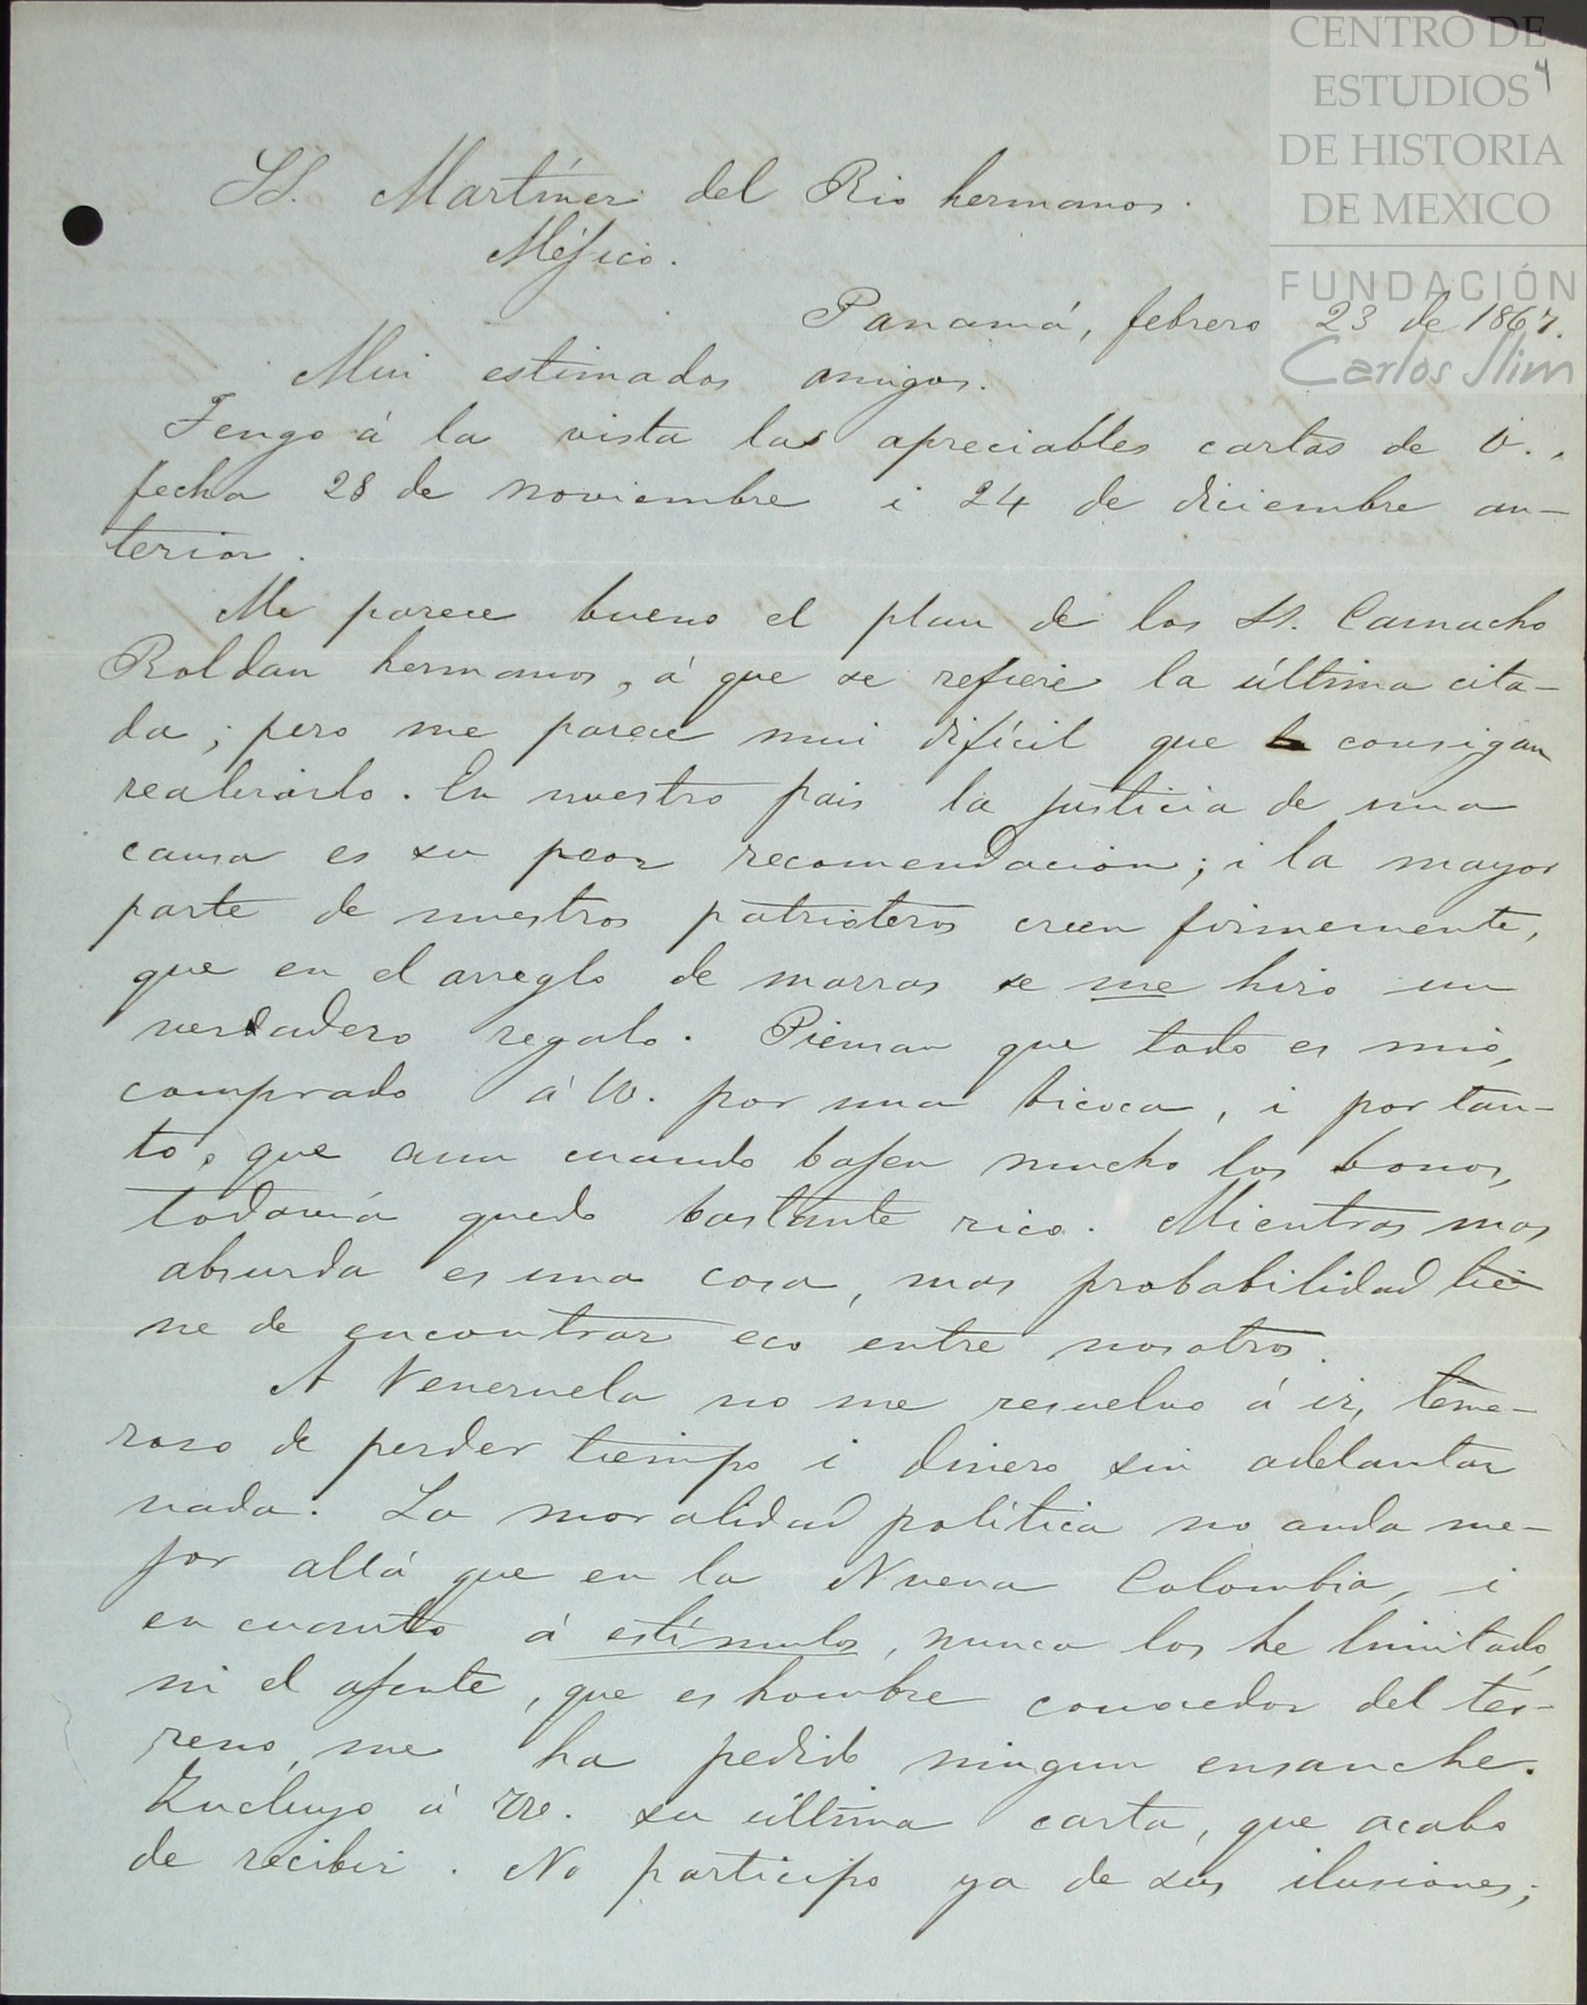 CENTRO DE
ESTUDIOS
DE HISTORIA
DE MEXICO
FUNDACIÓN
Carlos Slim
4
SS. Martínez del Rio hermanos.
Méjico.
Panamá, febrero 23 de 1867.
Mui estimados amigos.
Tengo á la vista las apreciables cartas de U.,
fecha 28 de noviembre i 24 de diciembre an-
terior.
Me parece bueno el plan de los SS. Camacho
Roldan hermanos, á que se refiere la última cita-
da; pero me parece mui difícil que consigan
realizarlo. En nuestro pais la justicia de una
causa es su peor recomendacion; i la mayor
parte de nuestros patrioteros creen firmemente,
que en el arreglo de marras se me hizo un
verdadero regalo. Piensan que todo es mio,
comprado á UU. por una bicoca, i por tan-
to, que aun cuando bajen mucho los bonos,
todavía quedo bastante rico. Mientras mas
absurda es una cosa, mas probabilidad tie
ne de encontrar eco entre nosotros.
A Venezuela no me resuelvo á ir, teme-
roso de perder tiempo i dinero sin adelantar
nada. La moralidad política no anda me-
jor allá que en la Nueva Colombia, i
en cuanto á estímulos, nunca los he limitado,
ni el ajente, que es hombre conocedor del ter-
reno, me ha pedido ningun ensanche.
Incluyo á UU. su última carta, que acabo
de recibir. No participo ya de sus ilusiones;